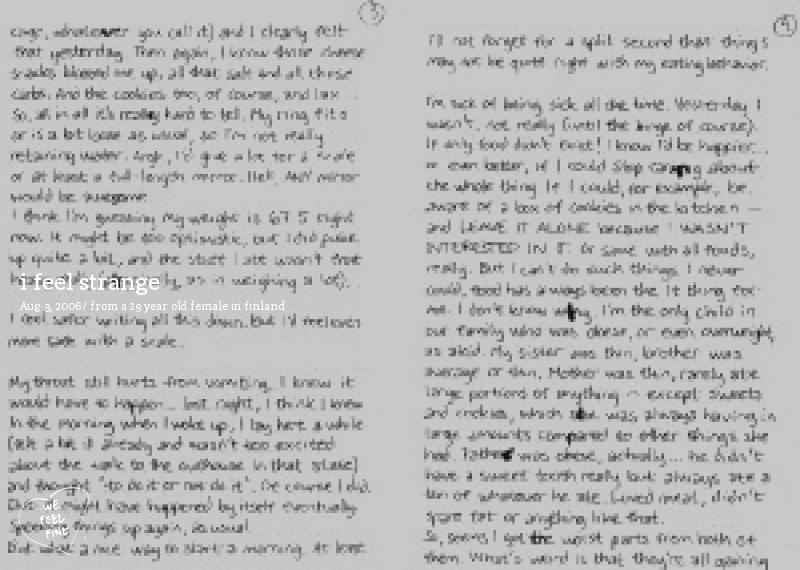 3
(cage, whatever you call it) and I clearly felt
that yesterday. Then again, I know those cheese
snacks bloated me up, all that salt and all those
carbs. And the cookies too, of course, and lax...
So, all in all it's really hard to tell. My ring fits
or is a bit loose as usual, so I'm not really
retaining water. Argh, I'd give a lot for a scale
or at least a full-length mirror. Hell, ANY mirror
would be awesome.
I think I'm guessing my weight is 67.5 right
now. It might be too optimistic, but I did puke
up quite a bit, and the stuff I ate wasn't that
as in weighing a lot).
I feel safer writing all this down. But I'd feel even
more safe with a scale.
My throat still hurts from vomiting, I knew it
would have to happen... last night, I think I knew
In the morning when I woke up, I lay here a while
(ate a bit already and wasn't too excited
about the walk to the outhouse in that state)
and thought "to do it or not do it". Of course I did.
might have happened by itself eventually
things up again, as usual.
But what a nice way to start a morning. At least
4
I'll not forget for a split second that things
may not be quite right with my eating behavior.
I'm sick of being sick all the time. Yesterday I
wasn't, not really (until the binge of course).
If only food didn't exist! I know I'd be happier...
or even better, if I could stop caring about
the whole thing. If I could, for example, be
aware of a box of cookies in the kitchen —
and LEAVE IT ALONE because I WASN'T
INTERESTED IN IT. Or same with all foods,
really. But I can't do such things. I never
could, food has always been the It thing for
me. I don't know why. I'm the only child in
our family who was obese, or even overweight,
as a kid. My sister was thin, brother was
average or thin. Mother was thin, rarely ate
large portions of anything — except sweets
and cookies, which she was always having in
large amounts compared to other things she
had. Father was obese, actually... he didn't
have a sweet tooth really but always ate a
ton of whatever he ate. Loved meat, didn't
spare fat or anything like that.
So, seems I got the worst parts from both of
them. What's weird is that they're all
i feel strange
Aug 3, 2006 / from a 29 year old female in finland
WE
FEEL
FINE